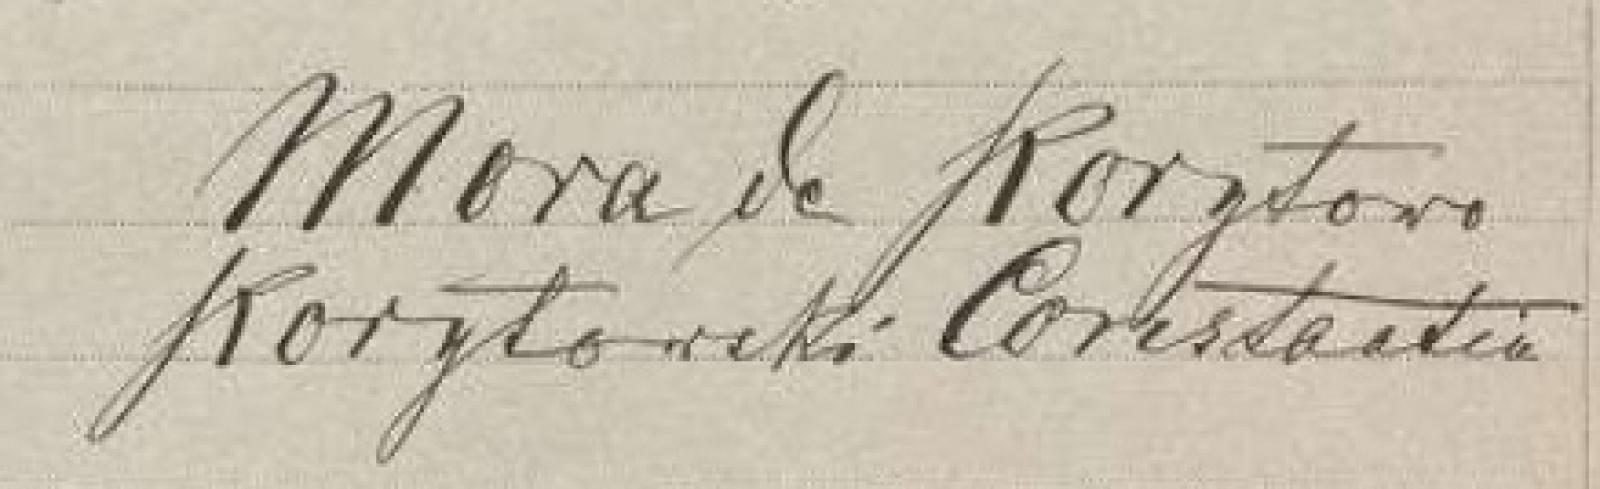 Mora de Korytowo
Korytowski Constantin